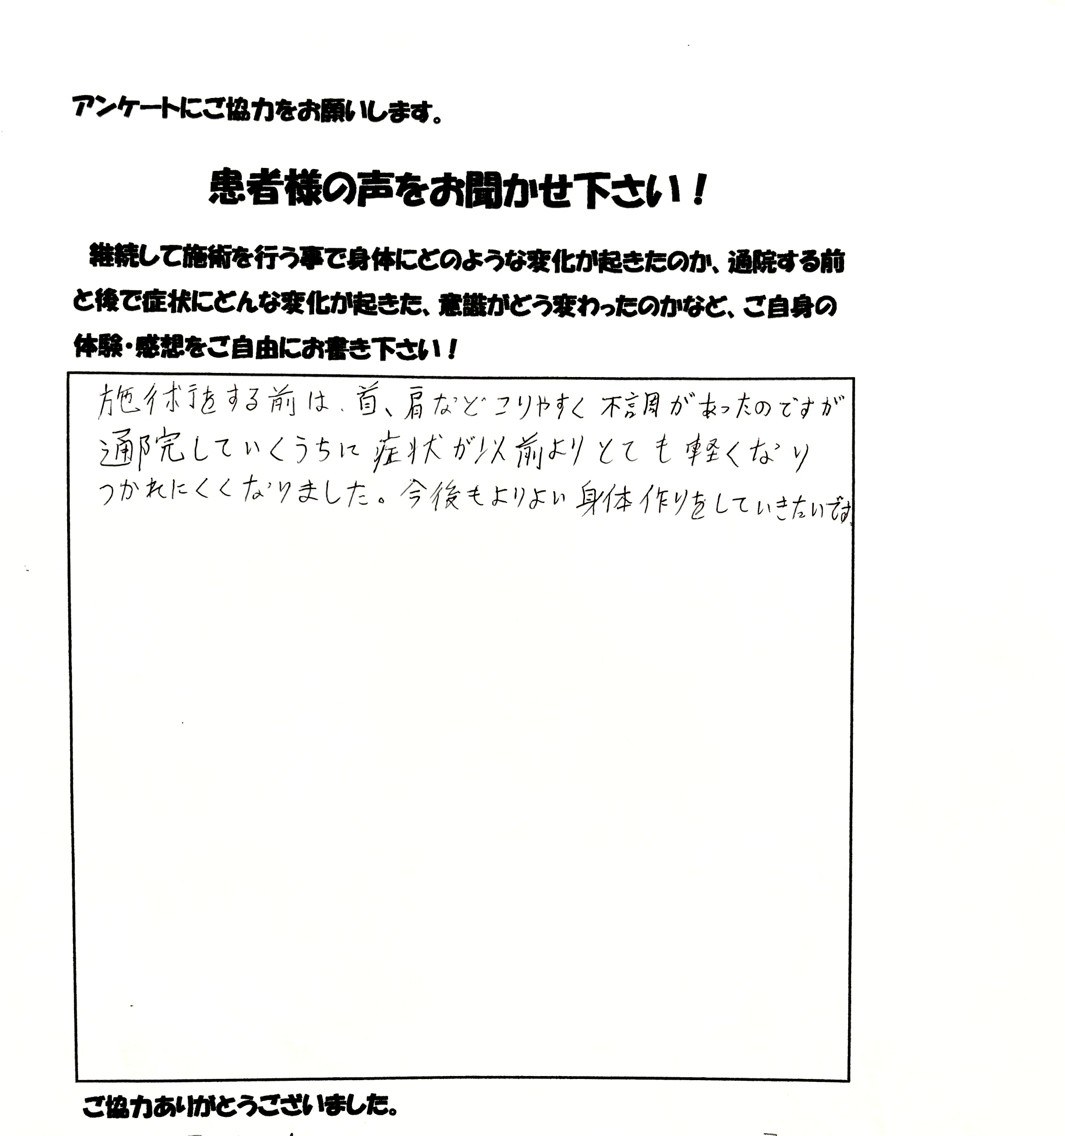 アンケートにご協力をお願いします。
患者様の声をお聞かせ下さい！
継続して施術を行う事で身体にどのような変化が起きたのか、通院する前
と後で症状にどんな変化が起きた、意識がどう変わったのかなど、ご自身の
体験・感想をご自由にお書き下さい！
施術をする前は、首、肩などコリやすく不調があったのですが
通院していくうちに症状が以前よりとても軽くなり
つかれにくくなりました。今後もよりよい身体作りをしていきたいです。
ご協力ありがとうございました。